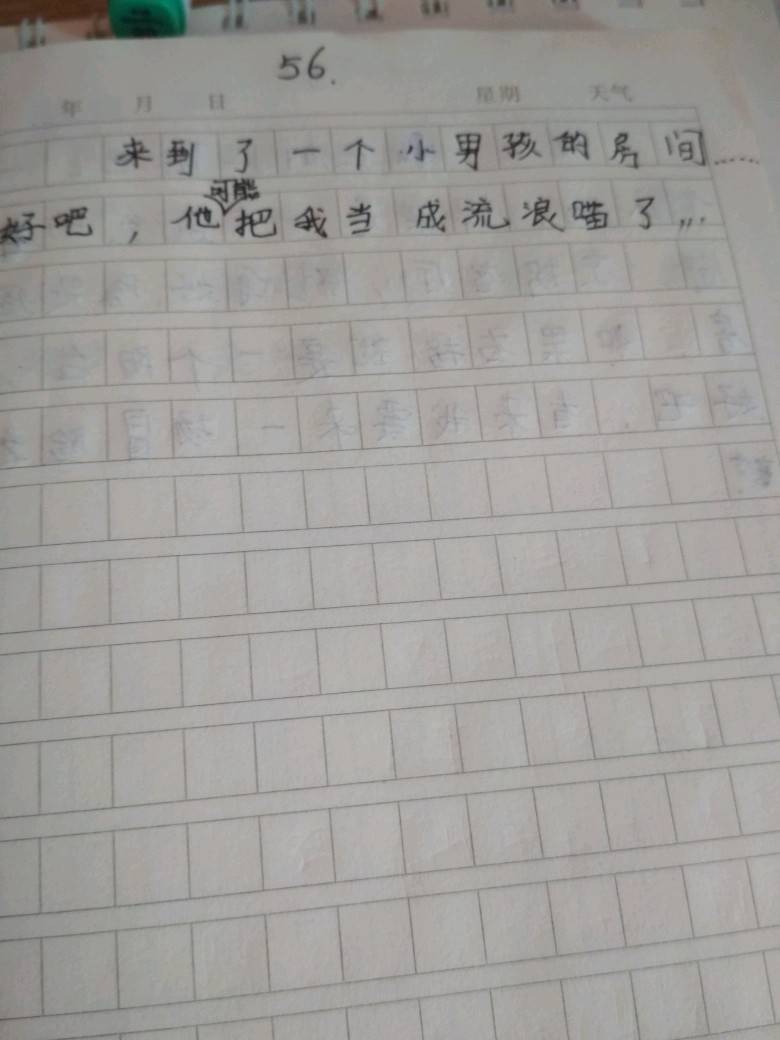 56.
年 月 日 星期 天气
来到了一个小男孩的房间……
好吧，他可能把我当成流浪喵了…